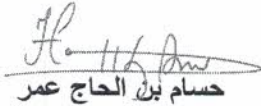 حسام بن الحاج عمر